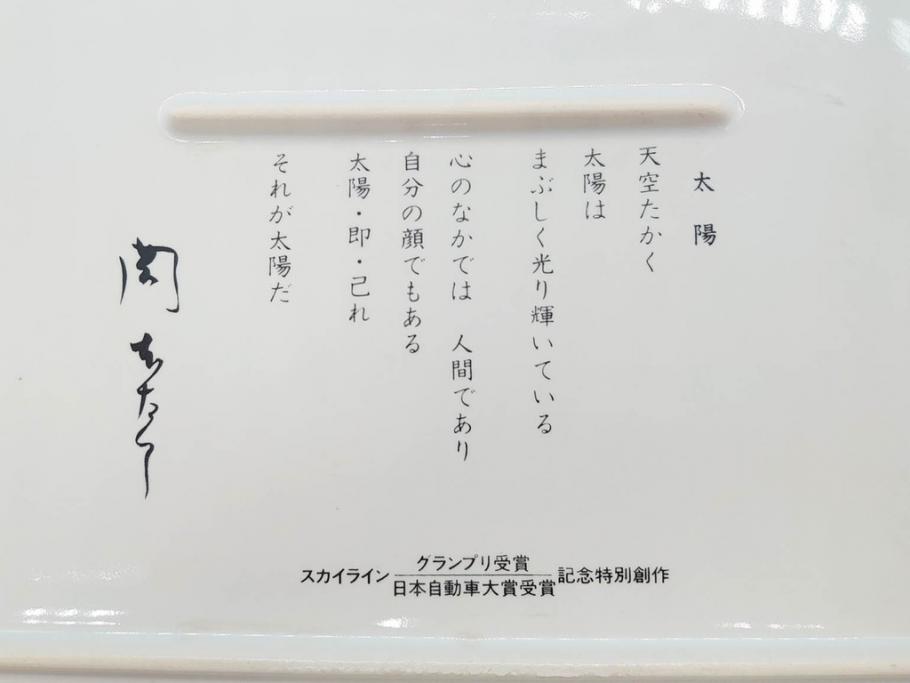 太陽
天空たかく
太陽は
まぶしく光り輝いている
心のなかでは　人間であり
自分の顔でもある
太陽・即・己れ
それが太陽だ
スカイライン グランプリ受賞 記念特別創作
日本自動車大賞受賞